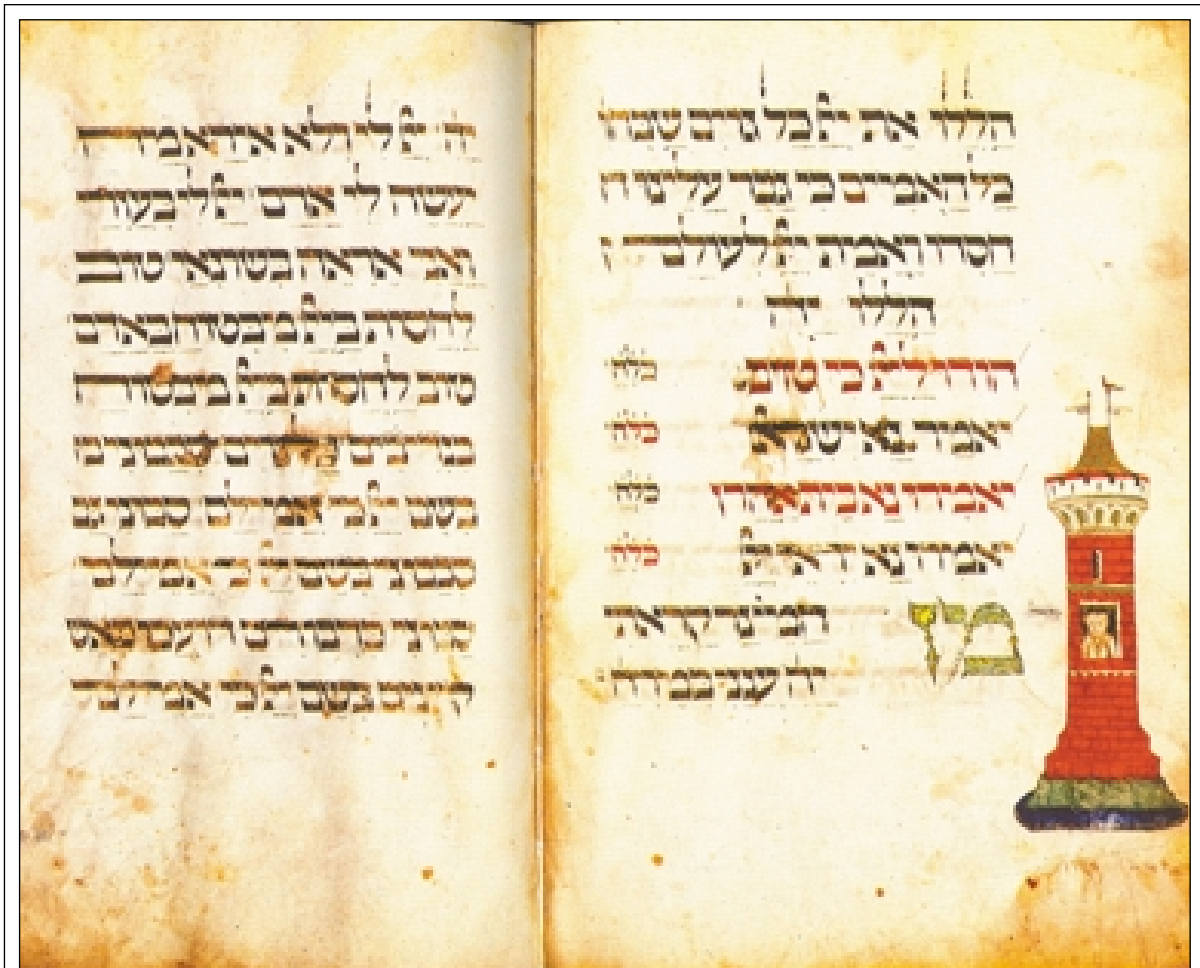 הללו את יי כל גוים שבחו
כל האמים כי גבר עלינו ח
חסדו ואמת יי לעולם
הללו יה
הודו ליי כי טוב כלה
יאמר נא ישרא כלה
יאמרו נא בית אהרן כלה
יאמרו נא יראי יי כלה
מן המיצר קראתי
יה ענני במרח
יה יי לי ולא אירא מה
יעשה לי אדם יי לי בעוזרי
ואני אראה בשונאי טוב
לחסות ביי מבטוח באדם
טוב לחסות ביי מבטוח
בנדיבים כל גוים סבבוני
בשם יי כי אמילם סבוני גם
סבבוני בשם יי כי אמילם
סבוני כדבורים דועכו כאש
קוצים בשם יי כי אמילם